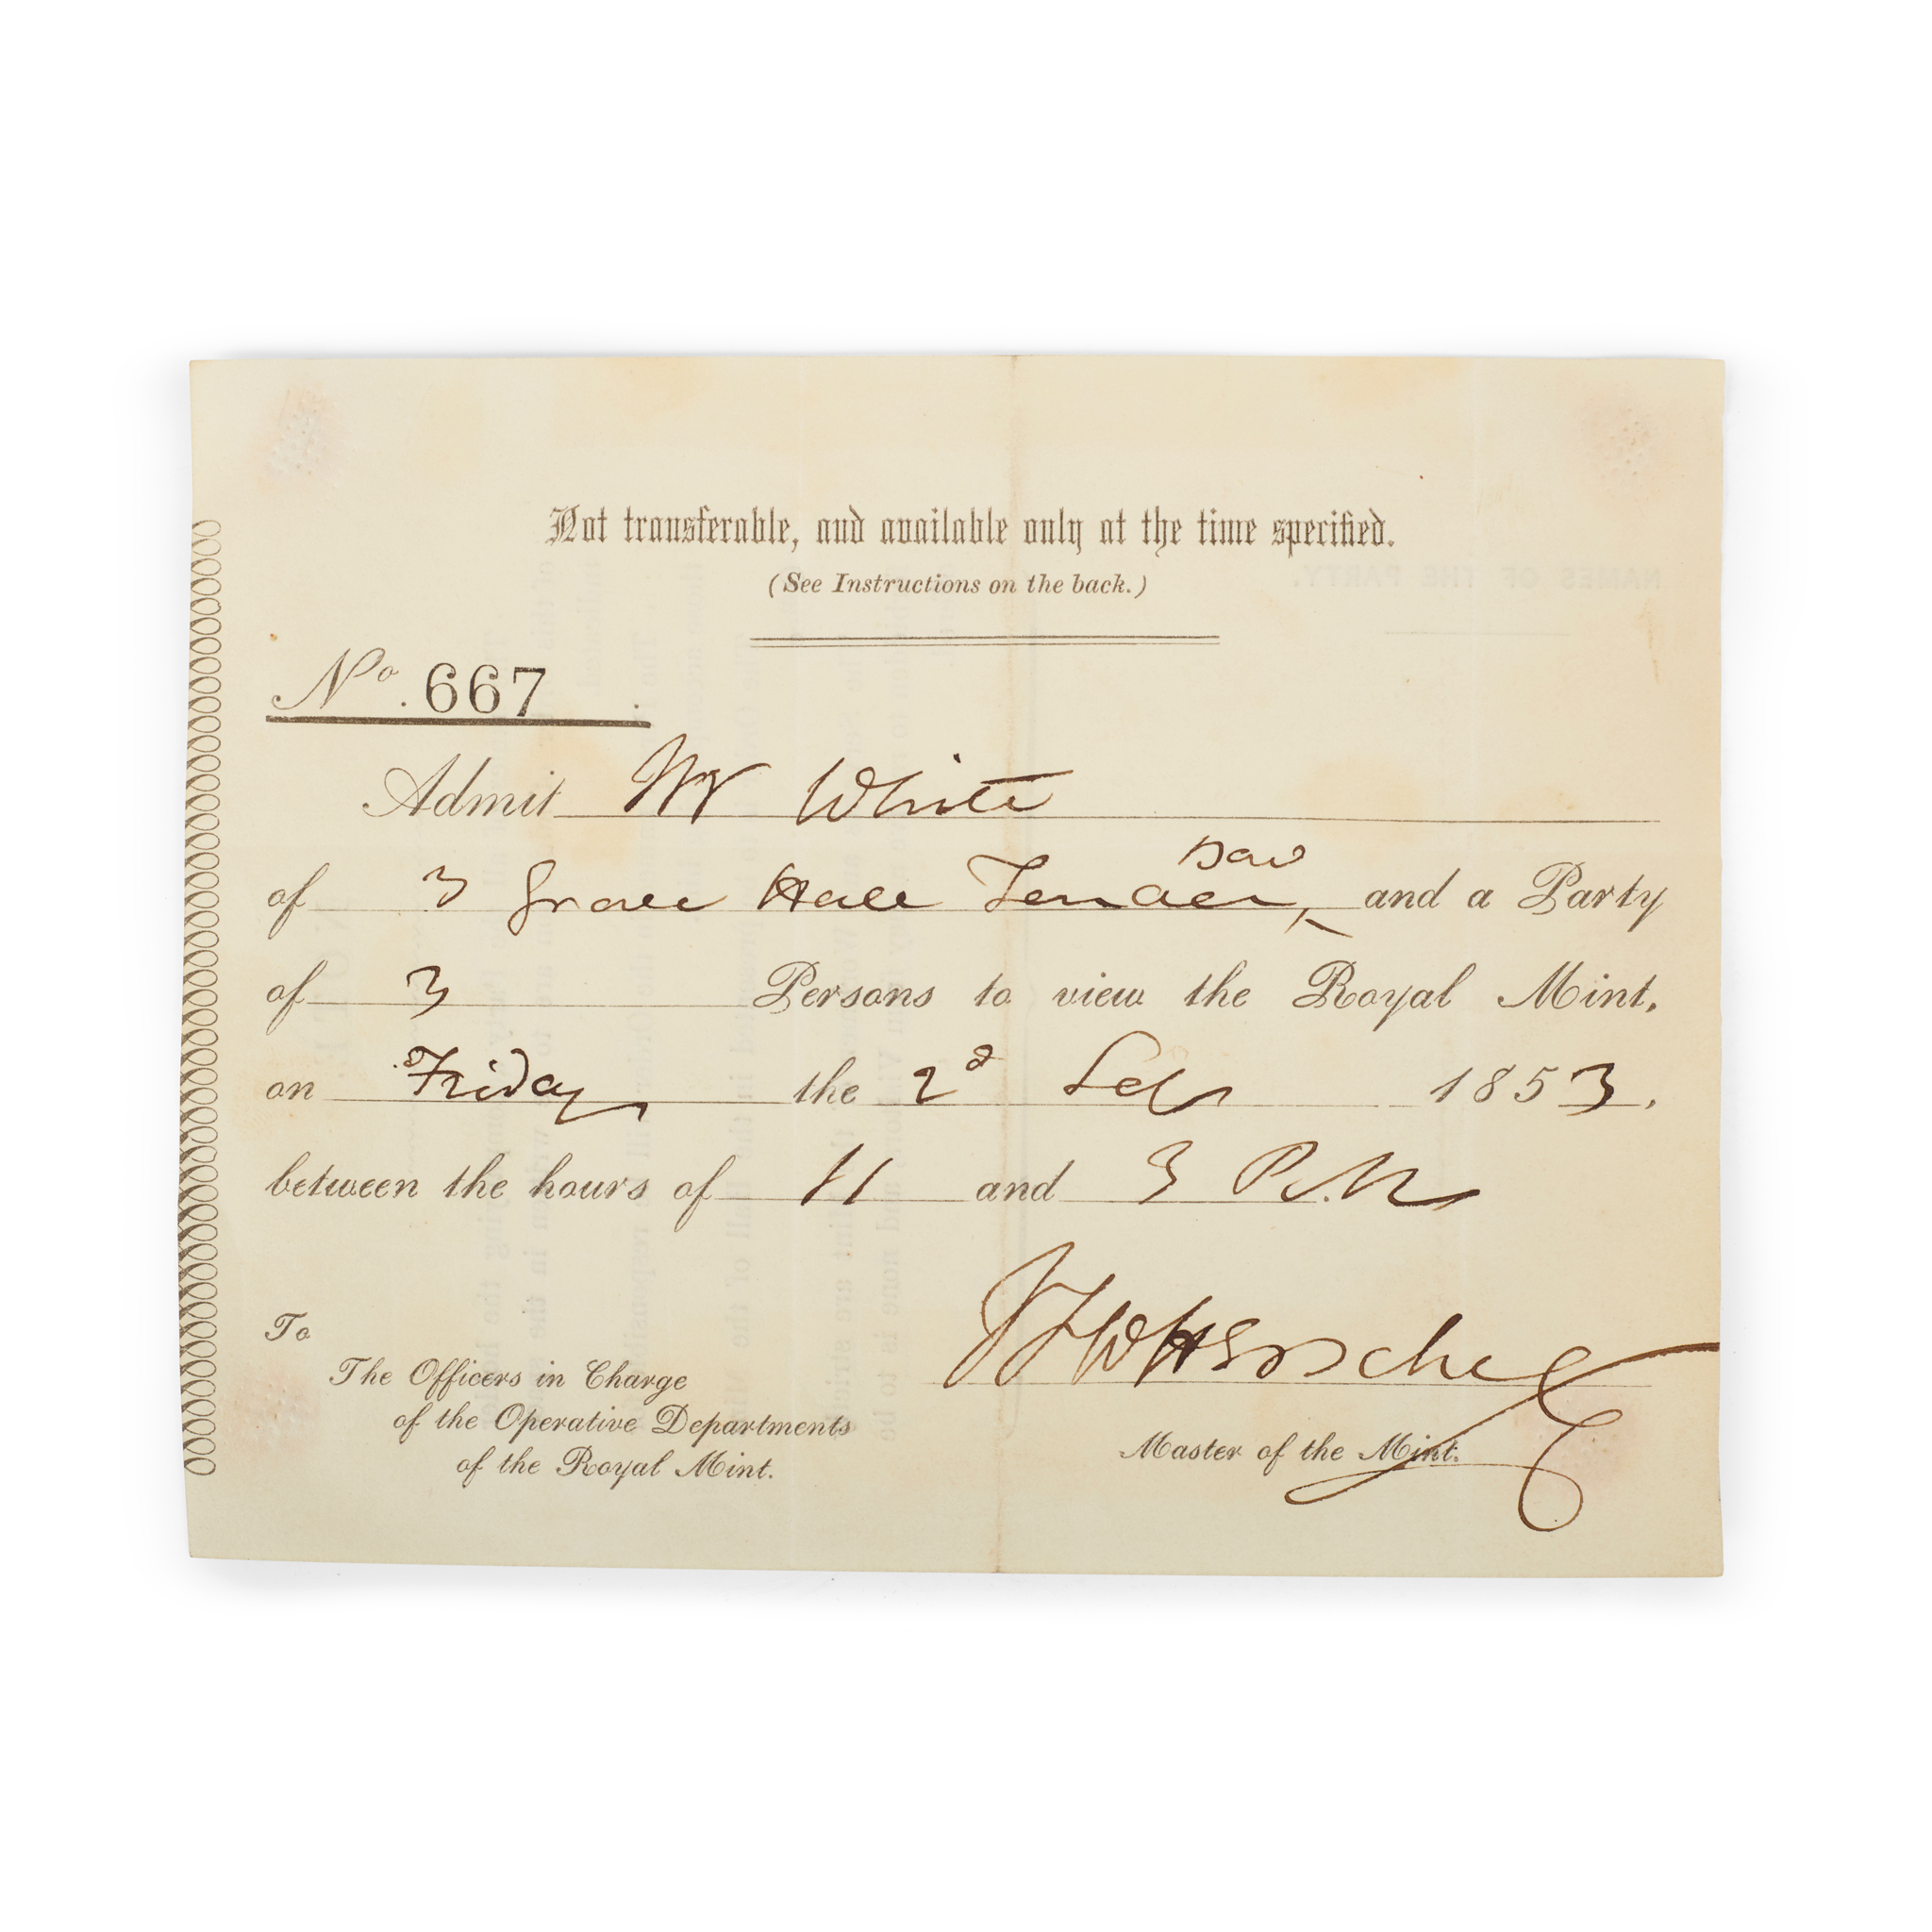 Not transferable, and available only at the time specified.
(See Instructions on the back.)
NAMES OF THE PARTY.
No. 667
Admit Mr White
of 3 Grove Hall and a Party
of 3 Persons to view the Royal Mint.
on Friday the 2d Sep 1853.
between the hours of 11 and 3 P.M
JFWHerschel
To
The Officers in Charge
of the Operative Departments
of the Royal Mint.
Master of the Mint.